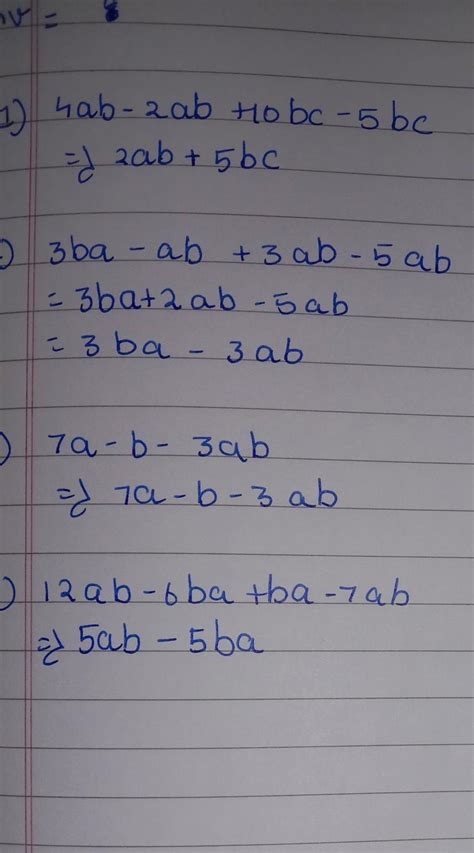 =
1) 4ab - 2ab + 10bc - 5bc
=> 2ab + 5bc
) 3ba - ab + 3ab - 5ab
= 3ba + 2ab - 5ab
= 3ba - 3ab
) 7a - b - 3ab
=> 7a - b - 3ab
) 12ab - 6ba + ba - 7ab
=> 5ab - 5ba